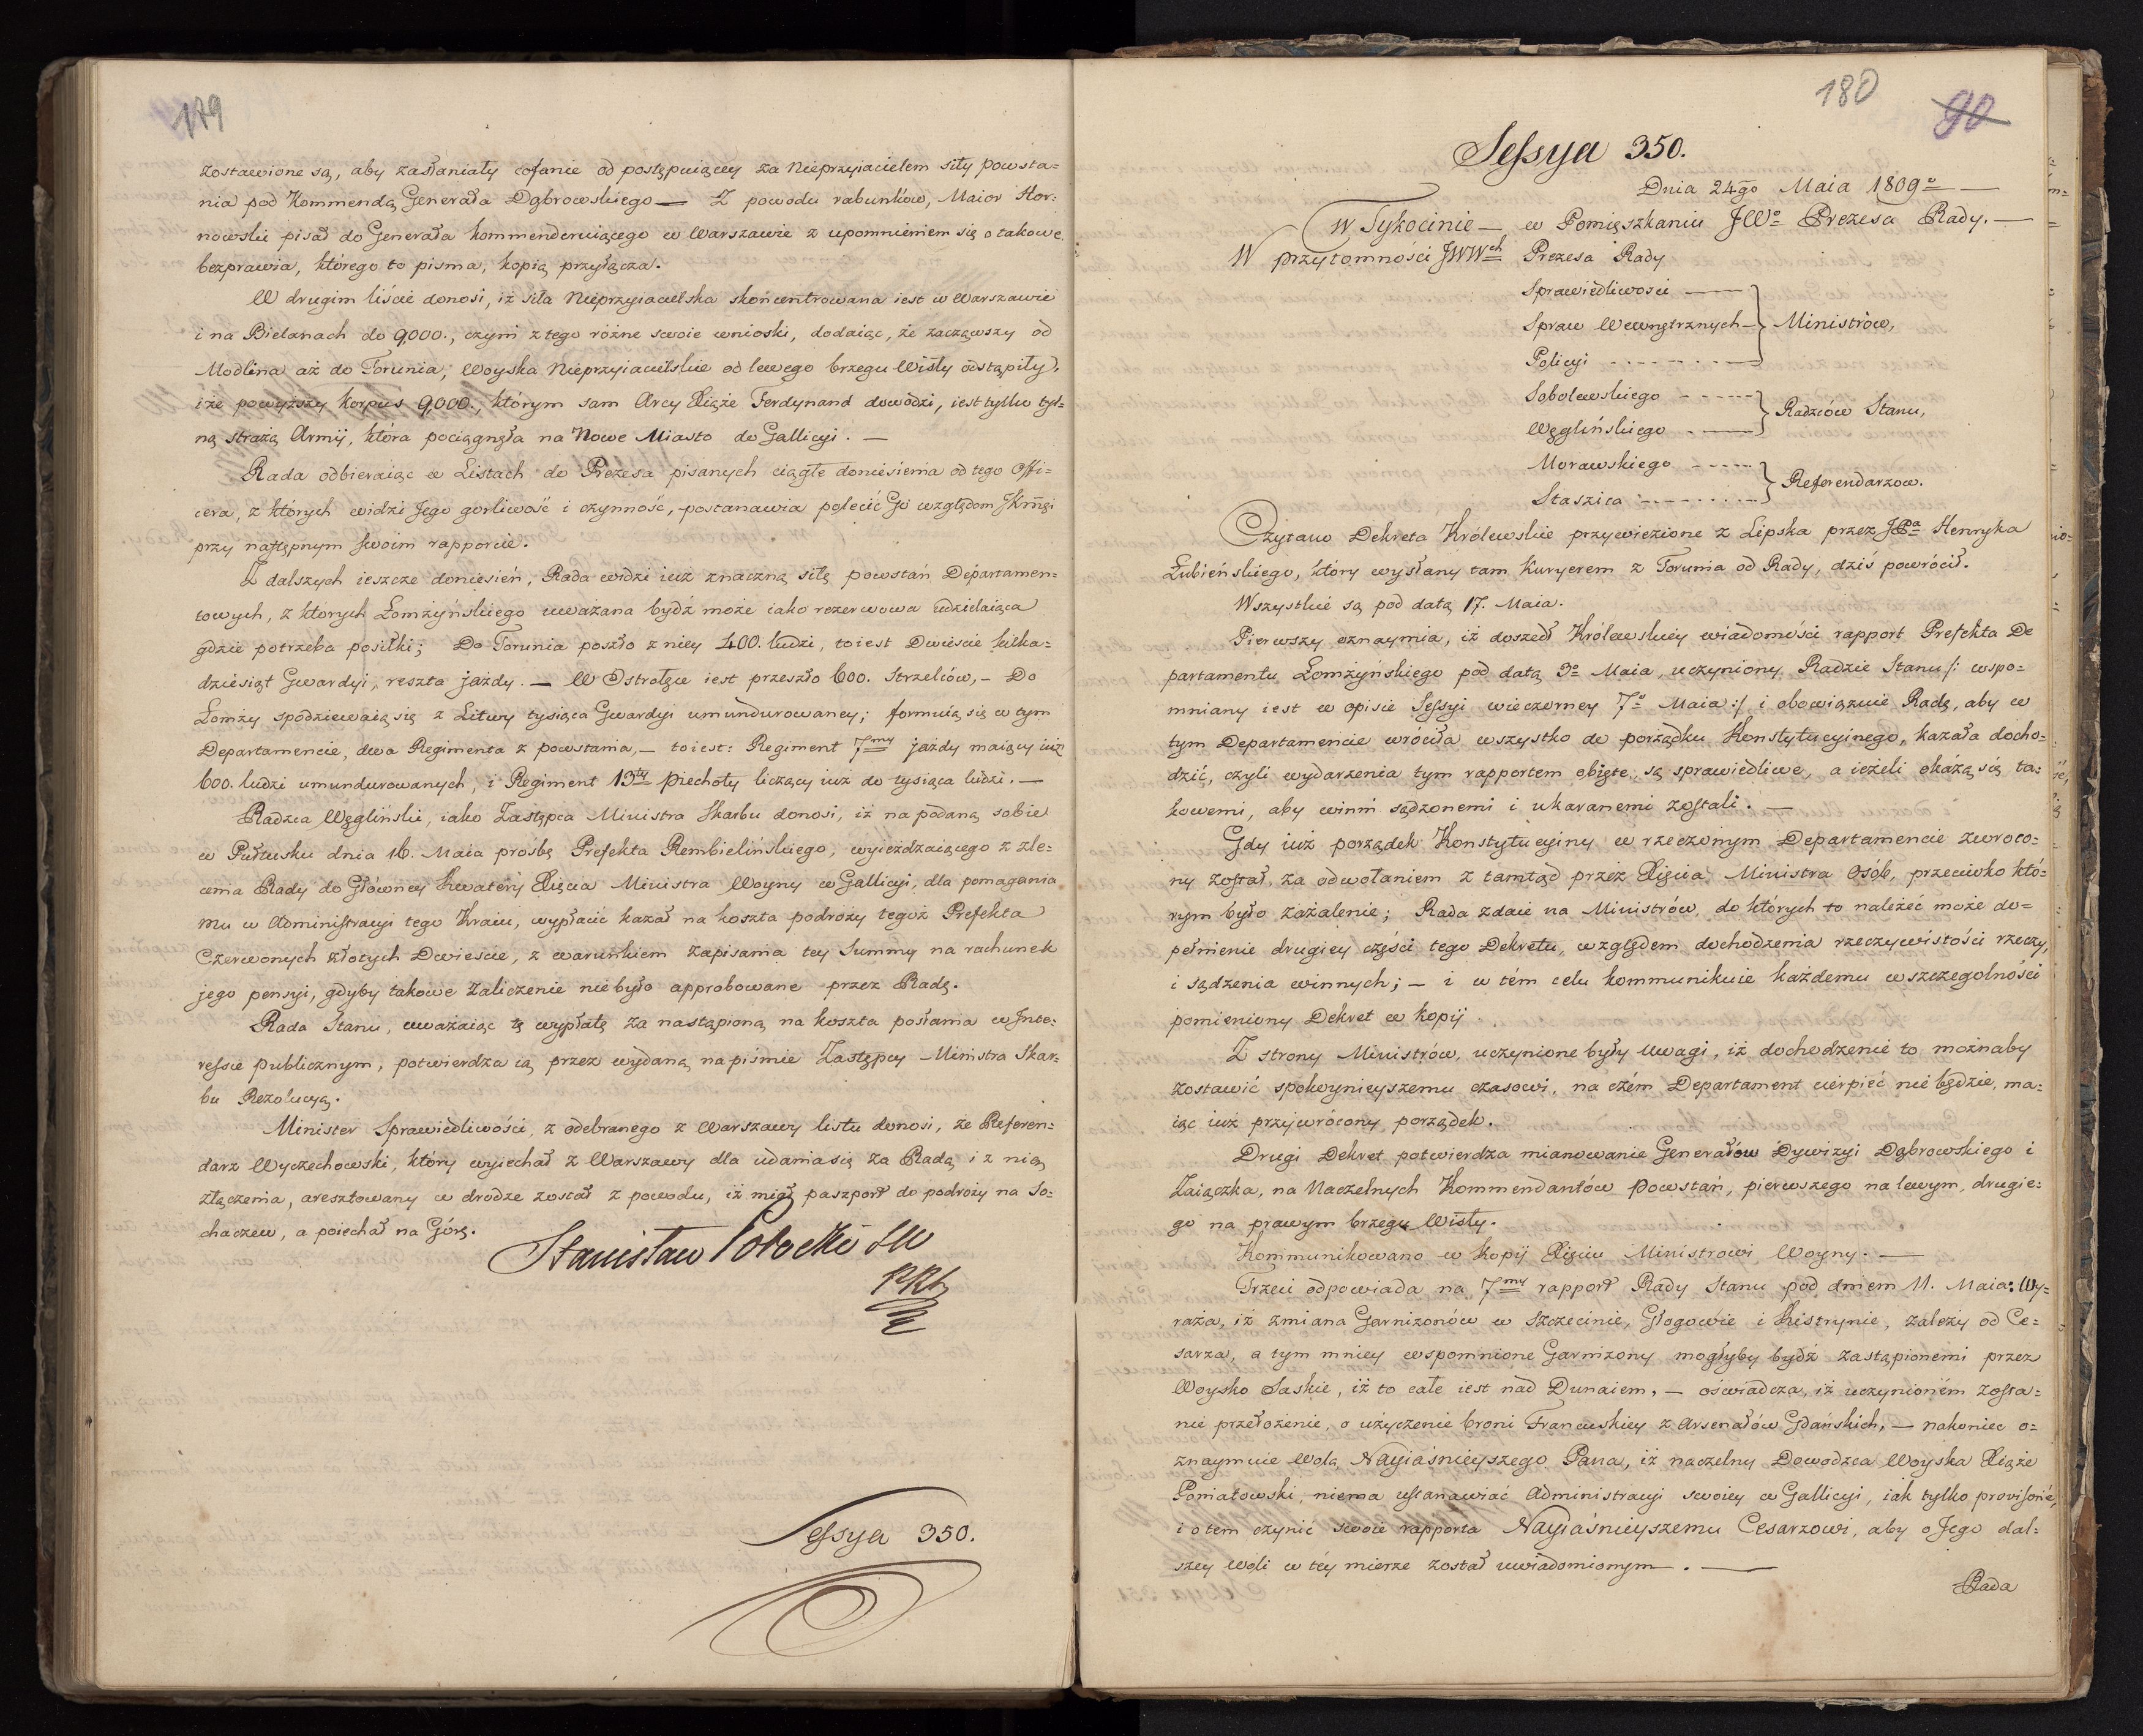 179
zostawione są, aby zasłaniały cofanie od postępuiącey za Nieprzyiacielem siły powsta=
nia pod Kommendą Generała Dąbrowskiego — Z powodu rabunków, Maior Hor=
nowski pisał do Generała kommenderuiącego w Warszawie z upomnieniem się o takowe
bezprawia, którego to pisma, kopią przyłącza.
W drugim liście donosi, iż siła Nieprzyiacielska skoncentrowana iest w Warszawie
i na Bielanach do 9,000., czyni z tego różne swoie wnioski, dodaiąc, że zacząwszy od
Modlina aż do Torunia, Woyska Nieprzyiacielskie od lewego brzegu Wisły odstąpiły,
i że powyższy korpus 9,000., którym sam Arcy Xiąże Ferdynand dowodzi, iest tylko tyl=
ną strażą Armij, która pociągnęła na Nowe Miasto do Gallicyi. —
Rada odbieraiąc w Listach do Prezesa pisanych ciągłe doniesienia od tego Offi=
cera, z których widzi Jego gorliwość i czynność, postanawia polecić Go względom JKmci
przy następnym swoim rapporcie.
Z dalszych ieszcze doniesień, Rada widzi iuż znaczną siłę powstań Departamen=
towych, z których Łomżyńskiego uważana bydź może iako rezerwowa udzielaiąca
gdzie potrzeba posiłki; Do Torunia poszło z niey 400. ludzi, toiest Dwieście kilka=
dziesiąt Gwardyi, reszta jazdy. — W Ostrołęce iest przeszło 600. Strzelców, — Do
Łomży spodziewaią się z Litwy tysiąca Gwardyi umundurowaney; formuią się w tym
Departamencie, dwa Regimenta z powstania, — toiest: Regiment 7my jazdy maiący iuż
600. ludzi umundurowanych, i Regiment 13ty piechoty liczący iuż do tysiąca ludzi. —
Radzca Węgliński, iako Zastępca Ministra Skarbu donosi, iż na podaną sobie
w Pułtusku dnia 16. Maia prośbę Prefekta Rembielińskiego, wyieżdzaiącego z zle=
cenia Rady do Główney kwatery Xięcia Ministra Woyny w Gallicyi, dla pomagania
mu w Administracyi tego Kraiu, wypłacić kazał na koszta podróży tegoż Prefekta
Czerwonych złotych Dwieście, z warunkiem zapisania tey Summy na rachunek
jego pensyi, gdyby takowe zaliczenie nie było approbowane przez Radę.
Rada Stanu, uważaiąc tę wypłatę za nastąpioną na koszta posłania w Inte=
ressie publicznym, potwierdza ią przez wydaną na piśmie Zastępcy Ministra Skar=
bu Rezolucyą.
Minister Sprawiedliwości, z odebranego z Warszawy listu donosi, że Referen=
darz Wyczechowski, który wyiechał z Warszawy dla udania się za Radą i z nią
złączenia, aresztowany w drodze został z powodu, iż miał paszport do podróży na So=
chaczew, a poiechał na Górę.
Stanisław Potocki
Sessya 350.
180
90
Sessya 350.
Dnia 24go Maia 1809o —
W Tykocinie — w Pomięszkaniu JWo Prezesa Rady. —
W przytomności JWWch Prezesa Rady
Sprawiedliwości —
Spraw Wewnętrznych — } Ministrów,
Policyi
Sobolewskiego
Węglińskiego } Radzców Stanu,
Morawskiego
Staszica } Referendarzow.
Czytano Dekreta Królewskie przywiezione z Lipska przez JPa Henryka
Łubieńskiego, który wysłany tam kuryerem z Torunia od Rady, dziś powrócił.
Wszystkie są pod datą 17. Maia.
Pierwszy oznaymia, iż doszedł Królewskiey wiadomości rapport Prefekta De
partamentu Łomżyńskiego pod datą 3o Maia, uczyniony Radzie Stanu /: wspo=
mniany iest w opisie Sessyi wieczorney 7o Maia :/ i obowiązuie Radę, aby w
tym Departamencie wróciła wszystko do porządku Konstytucyinego, kazała docho=
dzić, czyli wydarzenia tym rapportem obięte, są sprawiedliwe, a ieżeli okażą się ta=
kowemi, aby winni sądzonemi i ukaranemi zostali. —
Gdy iuż porządek Konstytucyiny w rzeczonym Departamencie zwróco=
ny został, za odwołaniem z tamtąd przez Xięcia Ministra osób, przeciwko któ=
rym było zażalenie; Rada zdaie na Ministrów, do których to należeć może do=
pełnienie drugiey części tego Dekretu, względem dochodzenia rzeczywistości rzeczy,
i sądzenia winnych; — i w tém celu kommunikuie każdemu w szczegolności
pomieniony Dekret w kopij.
Z strony Ministrów, uczynione były uwagi, iż dochodzenie to możnaby
zostawić spokoynieyszemu czasowi, na czém Departament cierpieć nie będzie, ma=
iąc iuż przywrócony porządek.
Drugi Dekret potwierdza mianowanie Generałów Dywizyi Dąbrowskiego i
Zaiączka, na Naczelnych Kommendantów Powstań, pierwszego na lewym, drugie=
go na prawym brzegu Wisły.
Kommunikowano w kopij Xięciu Ministrowi Woyny. —
Trzeci odpowiada na 7my rapport Rady Stanu pod dniem 11. Maia: Wy=
raża, iż zmiana Garnizonów w Szczecinie, Głogowie i Kistrynie, zależy od Ce=
sarza, a tym mniey wspomnione Garnizony mogłyby bydź zastąpionemi przez
Woysko Saskie, iż to całe iest nad Dunaiem, — oświadcza, iż uczynioném zosta=
nie przełożenie, o użyczenie broni Francuskiey z Arsenałów Gdańskich, — nakoniec o=
znaymuie wolą Nayiaśnieyszego Pana, iż naczelny Dowodzca Woyska Xiąże
Poniatowski, niema ustanawiać Administracyi swoiey w Gallicyi, iak tylko provisorie,
i o tem czynić swoie rapporta Nayiaśnieyszemu Cesarzowi, aby o Jego dal=
szey woli w téy mierze został uwiadomionym. —
Rada